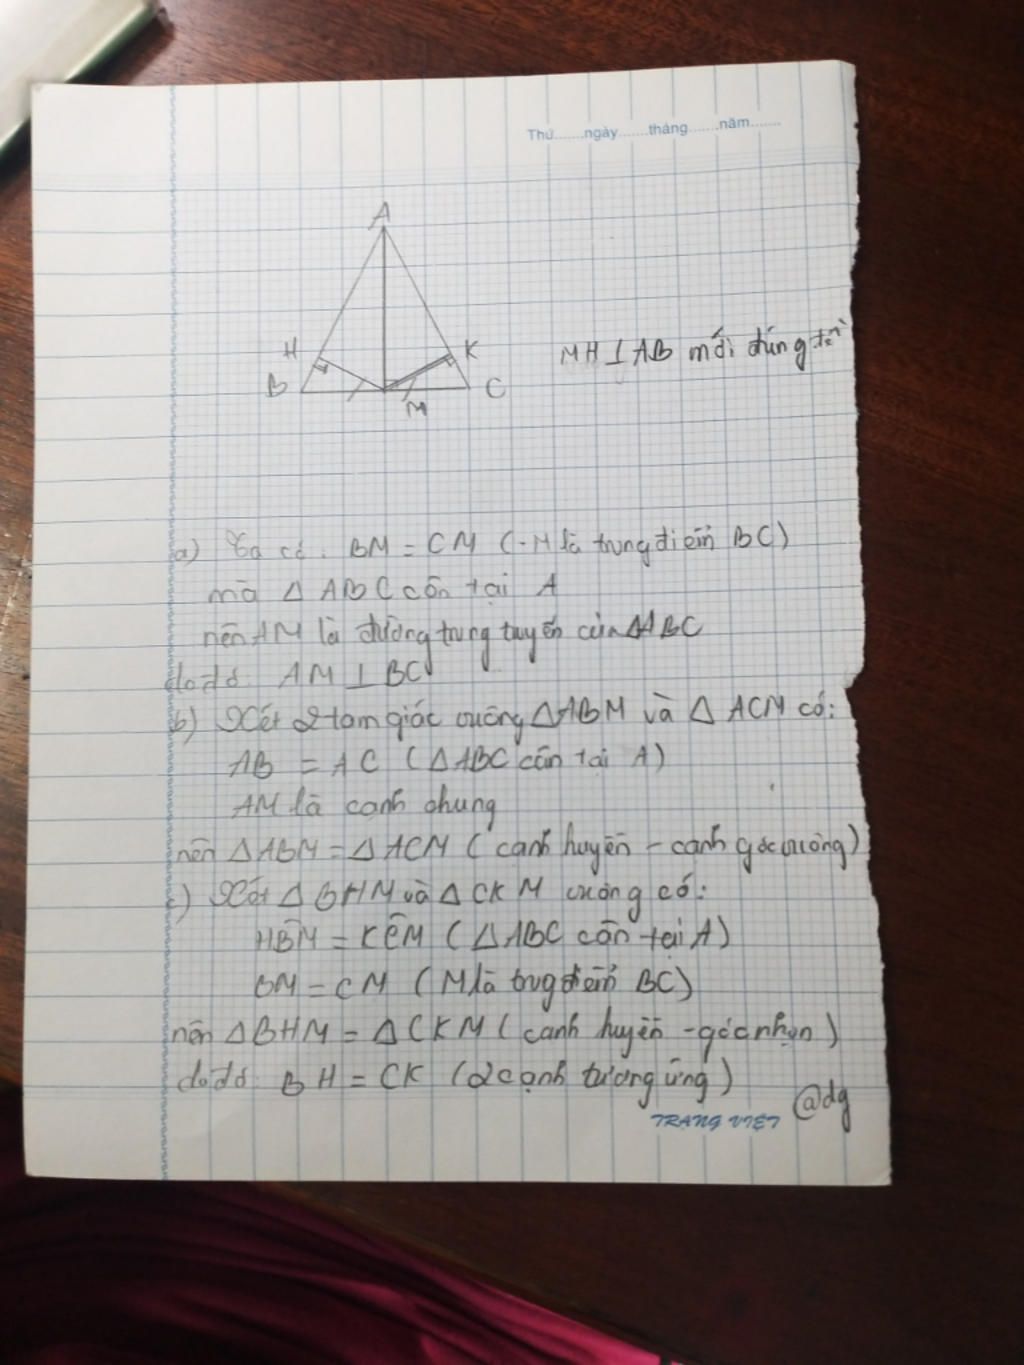 Thứ.......ngày.......tháng.......năm.......
A
H
K
MH⊥AB mới đúng
B
C
M
a) Ta có: BM = CM (M là trung điểm BC)
mà Δ ABC cân tại A
nên AM là đường trung tuyến của ΔABC
do đó AM ⊥ BC
b) Xét 2 tam giác vuông ΔABM và Δ ACM có:
AB = AC (ΔABC cân tại A)
AM là cạnh chung
nên ΔABM = ΔACM (cạnh huyền - cạnh góc vuông)
c) Xét Δ BHM và Δ CKM vuông có:
HBM = KCM (ΔABC cân tại A)
BM = CM (M là trug điểm BC)
nên ΔBHM = ΔCKM (cạnh huyền - góc nhọn)
do đó BH = CK (2 cạnh tương ứng)
@dg
TRANG VIỆT